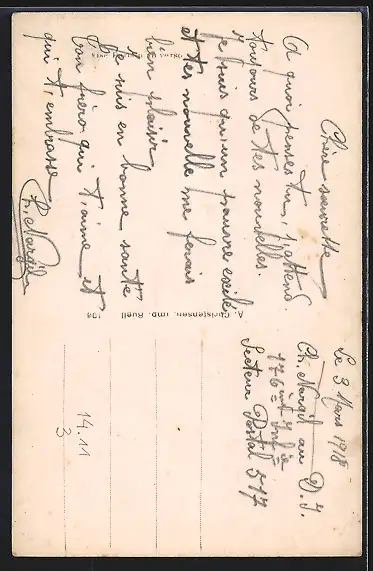 Le 3 Mars 1918
Ch. Nargil au D. I.
176 ème Inf ie
Secteur Postal 517
Chère sœurette
A quoi penses tu, j'attend
toujours de tes nouvelles.
Je suis qu'un pauvre exilé
et tes nouvelle me ferais
bien plaisir
Je suis en bonne santé
Ton frère qui t'aime et
qui t'embrasse
Ch. Nargil
A. Christensen, imp. Rueil
14.11
3